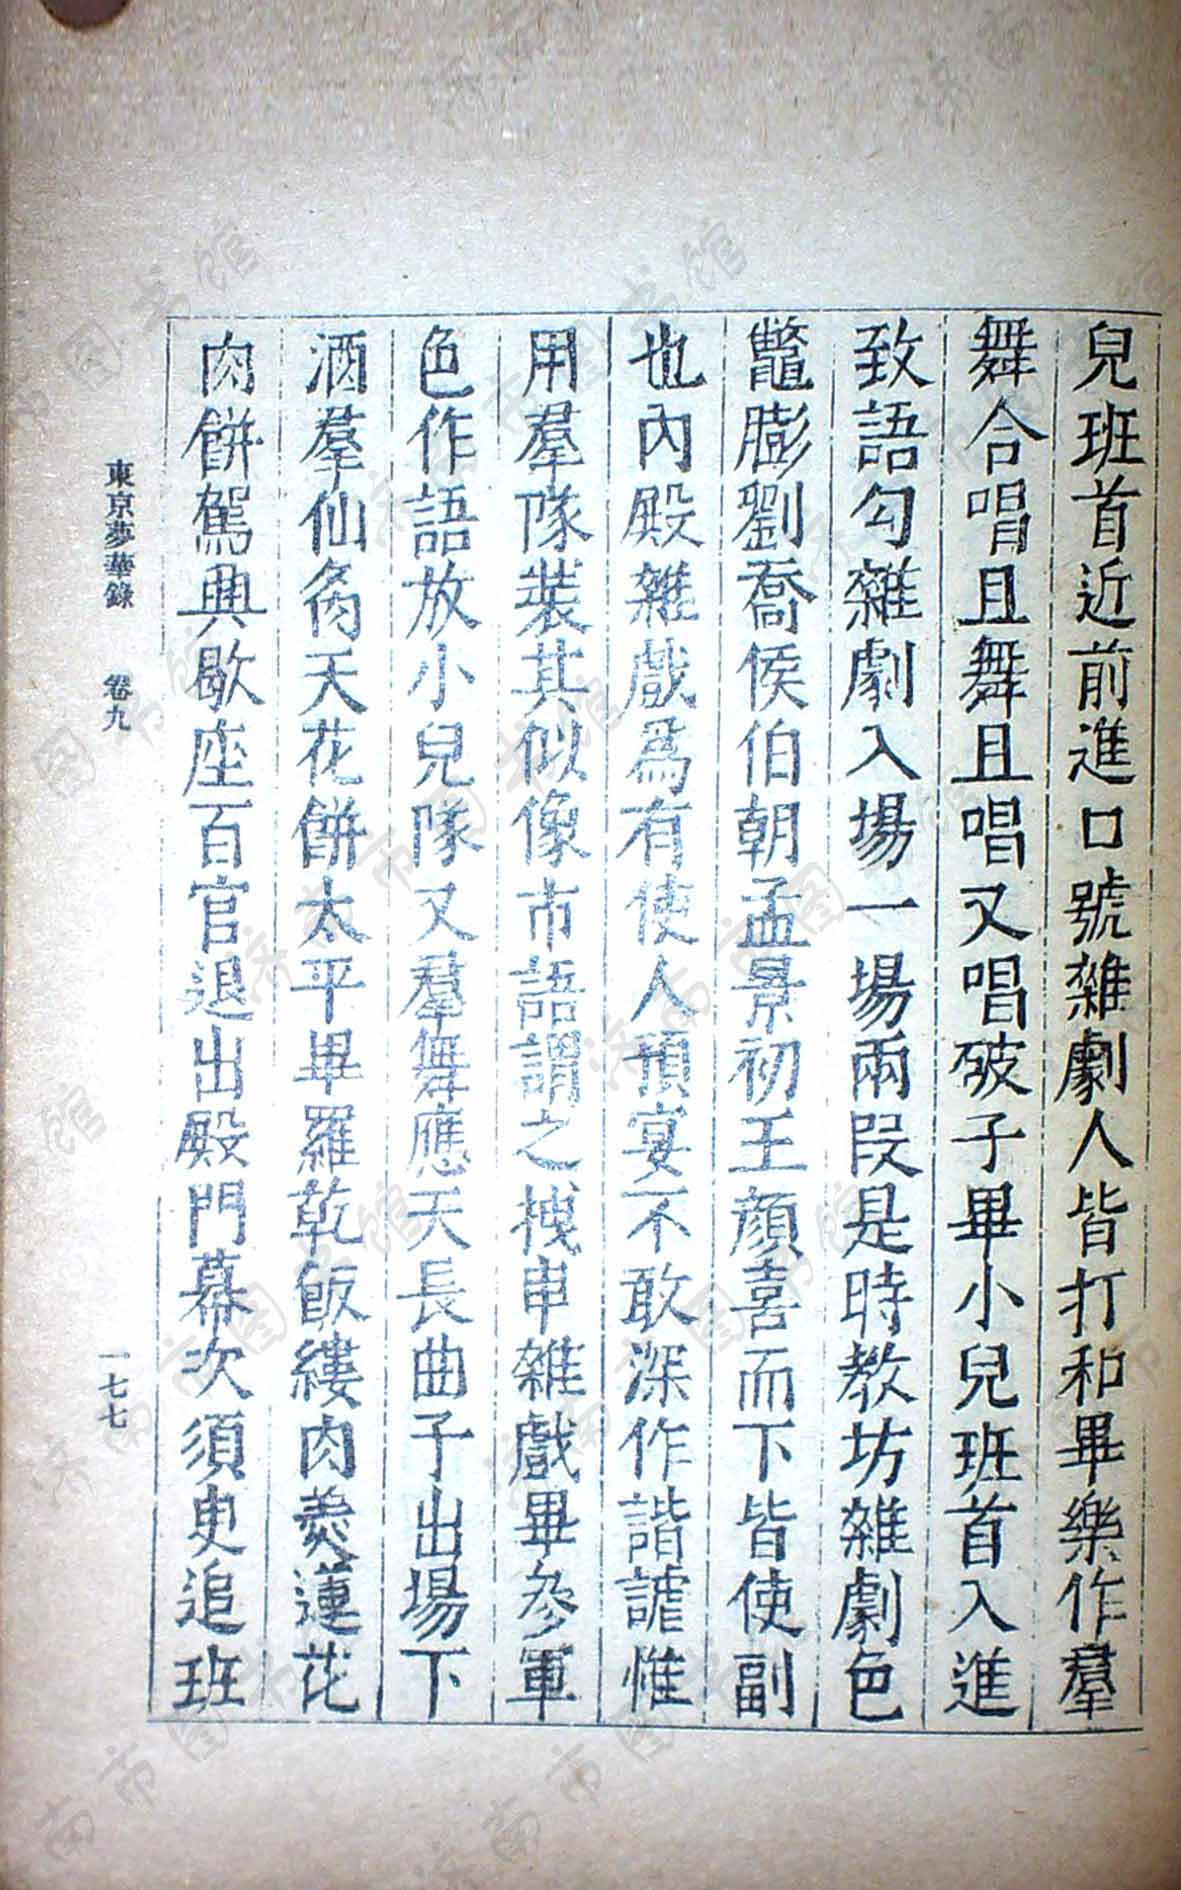 兒班首近前進口號雜劇人皆打和畢樂作羣
舞合唱且舞且唱又唱破子畢小兒班首入進
致語勾雜劇入場一場兩段是時教坊雜劇色
鼈膨劉喬侯伯朝孟景初王顔喜而下皆使副
也內殿雜戲爲有使人預宴不敢深作諧謔惟
用羣隊裝其似像市語謂之拽串雜戲畢參軍
色作語放小兒隊又羣舞應天長曲子出場下
酒羣仙炙天花餅太平畢羅乾飯縷肉羹蓮花
肉餅駕興歇座百官退出殿門幕次須臾追班
東京夢華錄 卷九
一七七
济南市图书馆